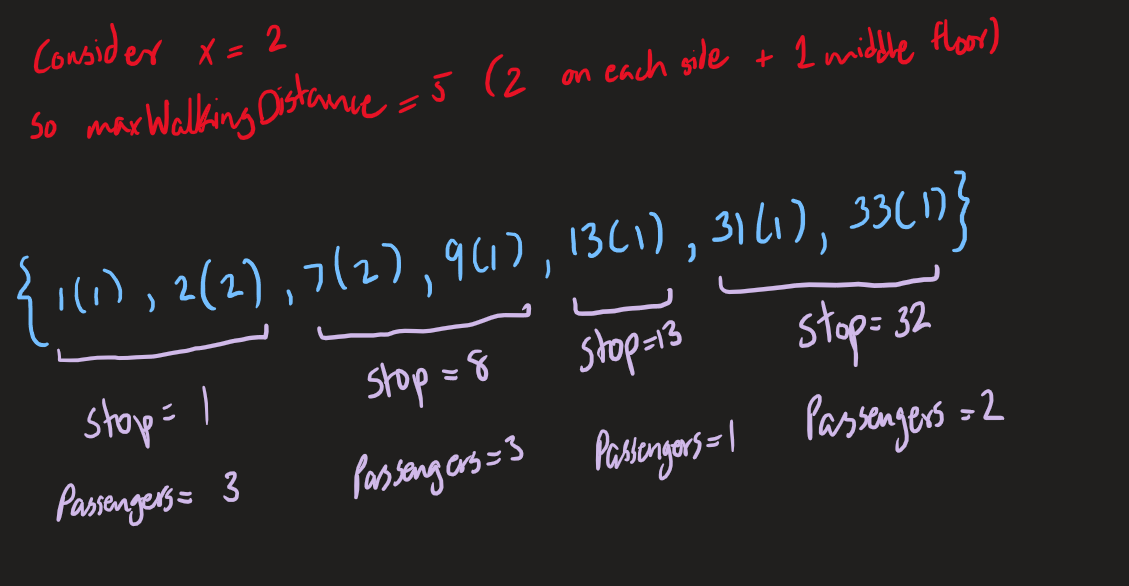 Consider x = 2
So maxWalkingDistance = 5 (2 on each side + 1 middle floor)
{ 1(1) , 2(2) , 7(2) , 9(1) , 13(1) , 31(1) , 33(1) }
Stop = 1 Stop = 8 Stop=13 Stop= 32
Passengers= 3 Passengers=3 Passengers=1 Passengers =2